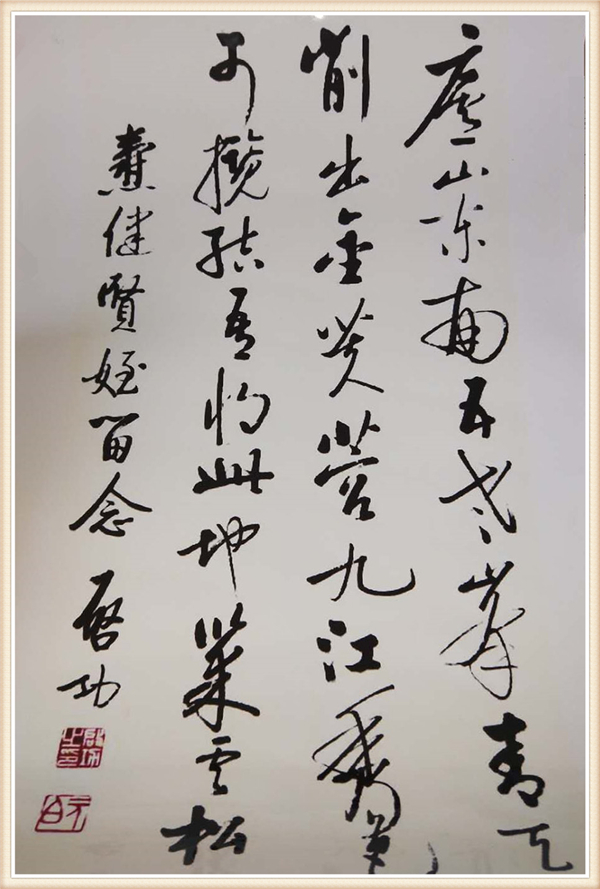 廬山東南五老峯青天
削出金芙蓉九江秀色
可攬結吾將此地巢云松
健賢姪留念 啓功
啟功之印
元白